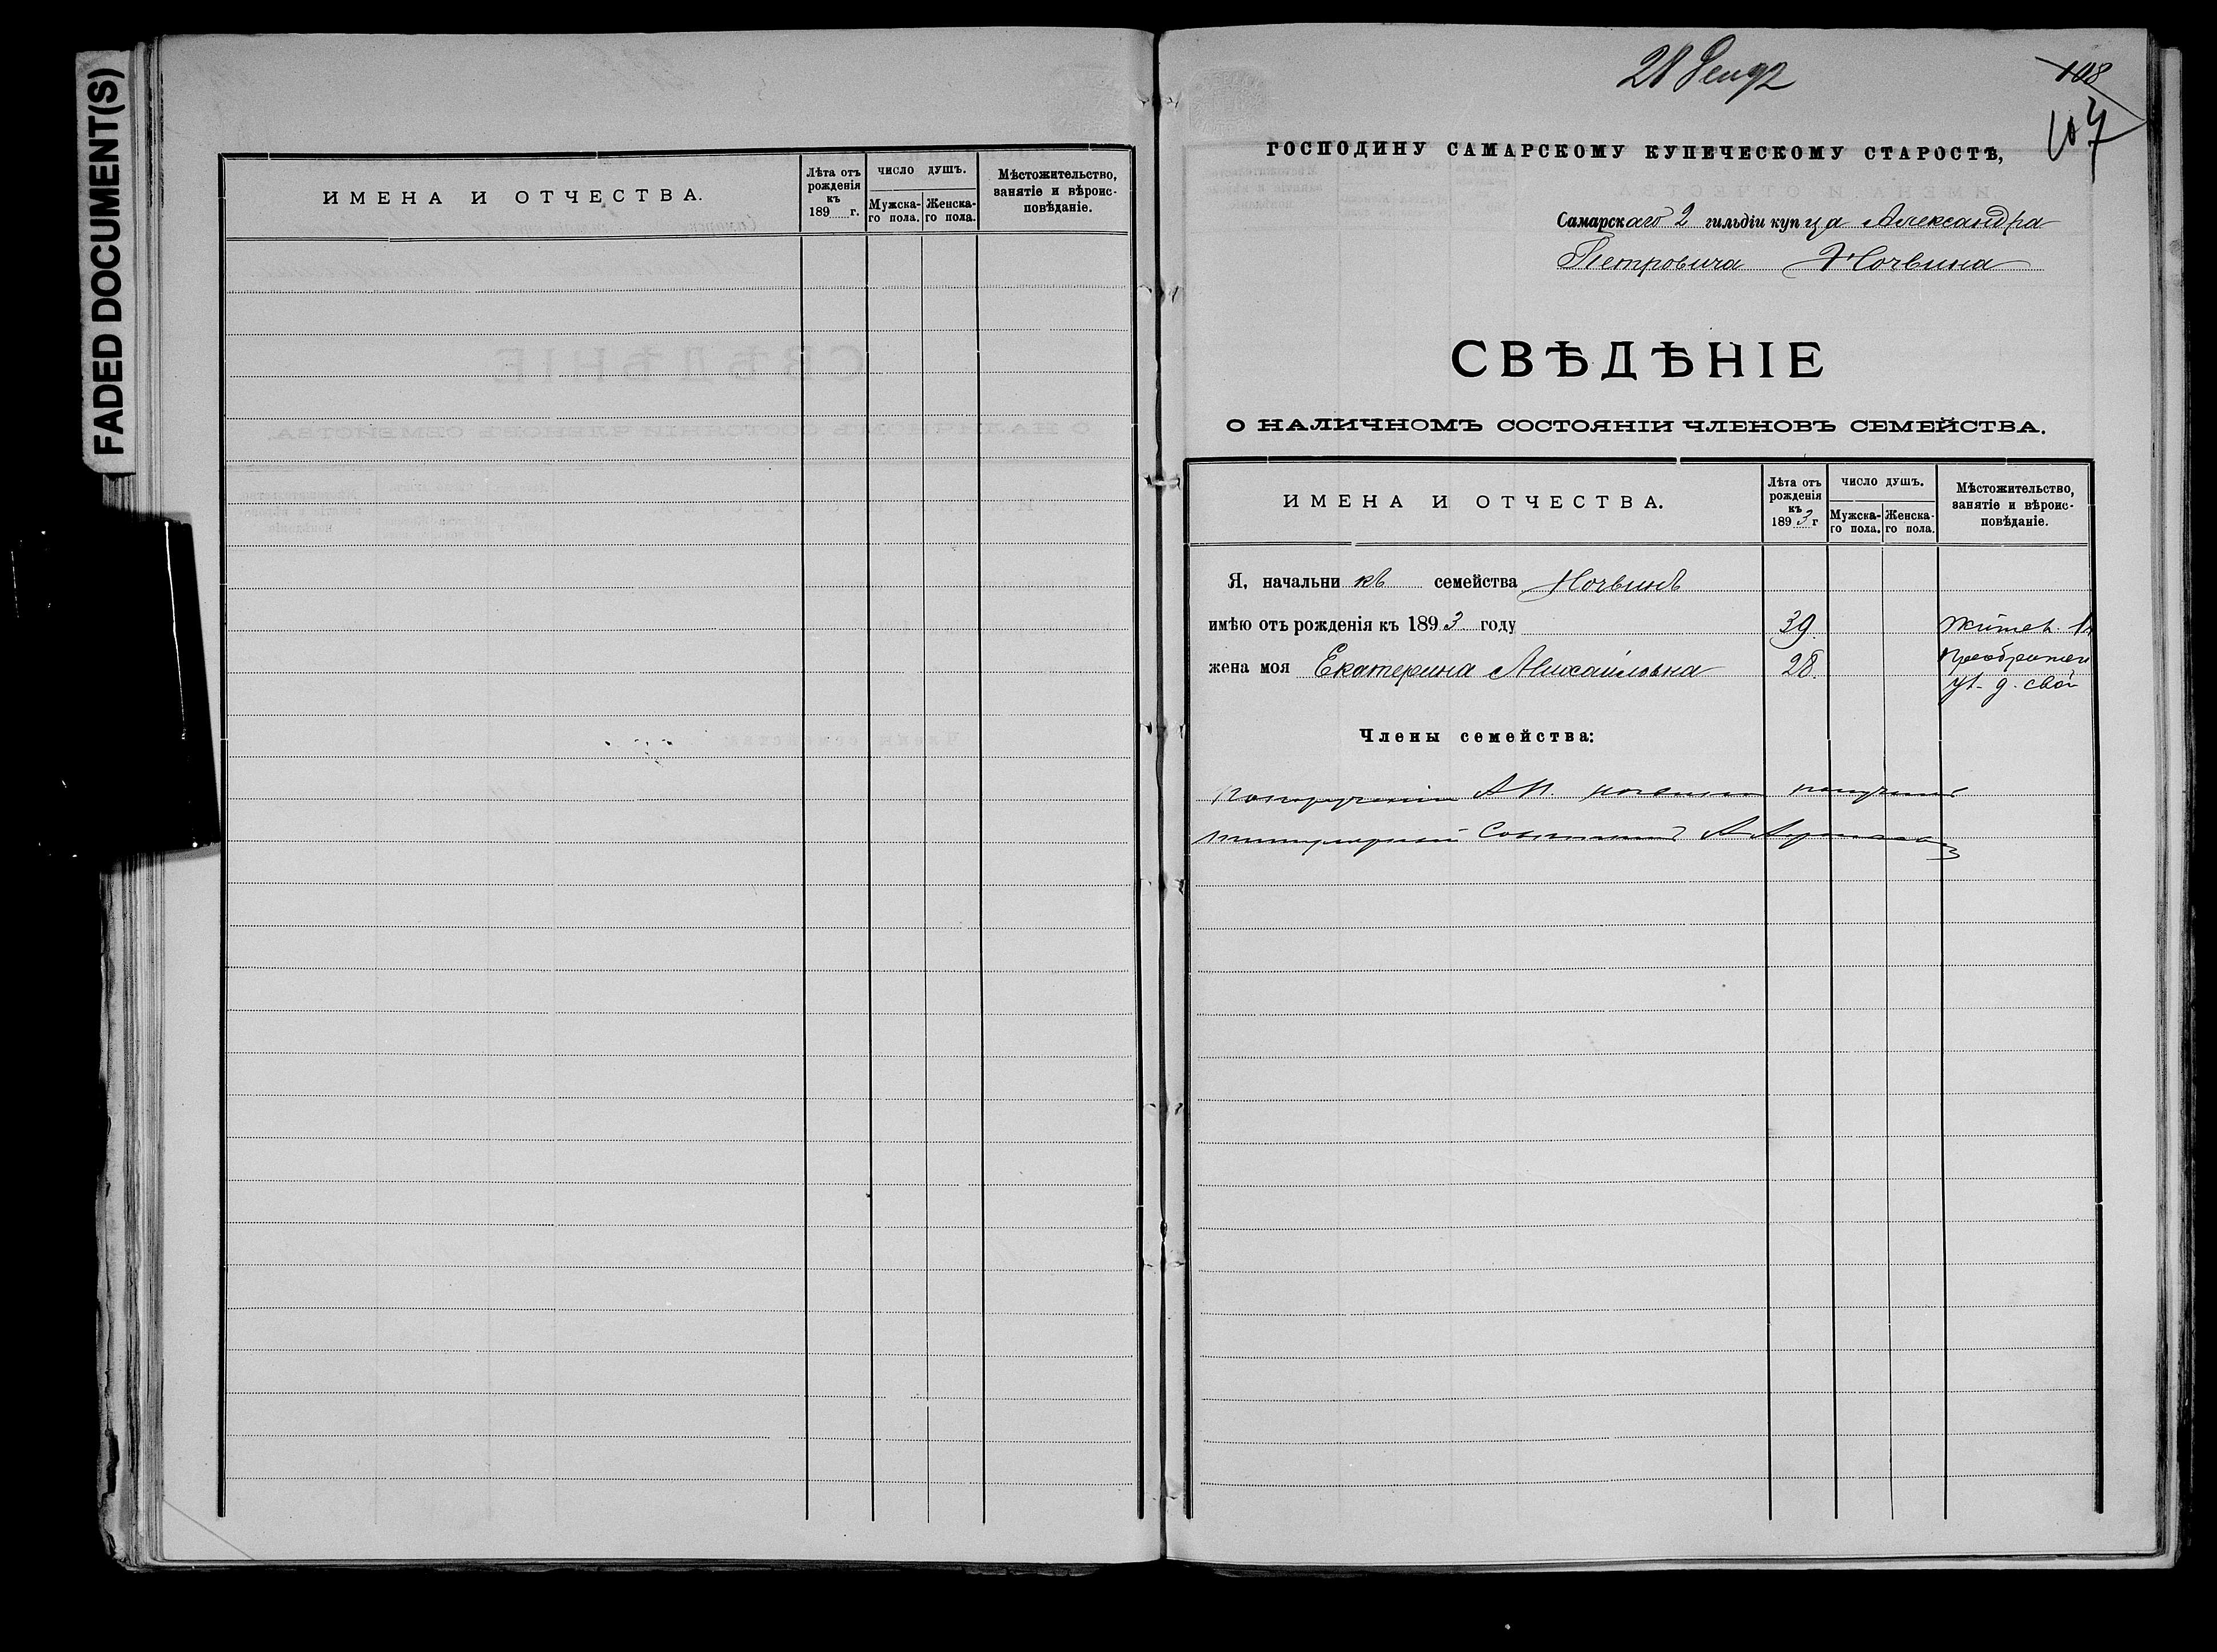 FADED DOCUMENT(S)
ИМЕНА И ОТЧЕСТВА.
Лѣта отъ рожденія къ 189 г.
ЧИСЛО ДУШЪ.
Мужска-го пола.
Женска-го пола.
Мѣстожительство, занятіе и вѣроис-повѣданіе.
108
107
ГОСПОДИНУ САМАРСКОМУ КУПЕЧЕСКОМУ СТАРОСТѢ,
Самарскаго 2 гильдіи купца Александра
Петровича
СВѢДѢНІЕ
О НАЛИЧНОМЪ СОСТОЯНІИ ЧЛЕНОВЪ СЕМЕЙСТВА.
ИМЕНА И ОТЧЕСТВА.
Лѣта отъ рожденія къ 1893 г
ЧИСЛО ДУШЪ.
Мужска-го пола.
Женска-го пола.
Мѣстожительство, занятіе и вѣроис-повѣданіе.
Я, начальникъ семейства
имѣю отъ рожденія къ 1893 году 39.
жена моя Екатерина Михайловна 28.
ул. д. свой
Члены семейства: